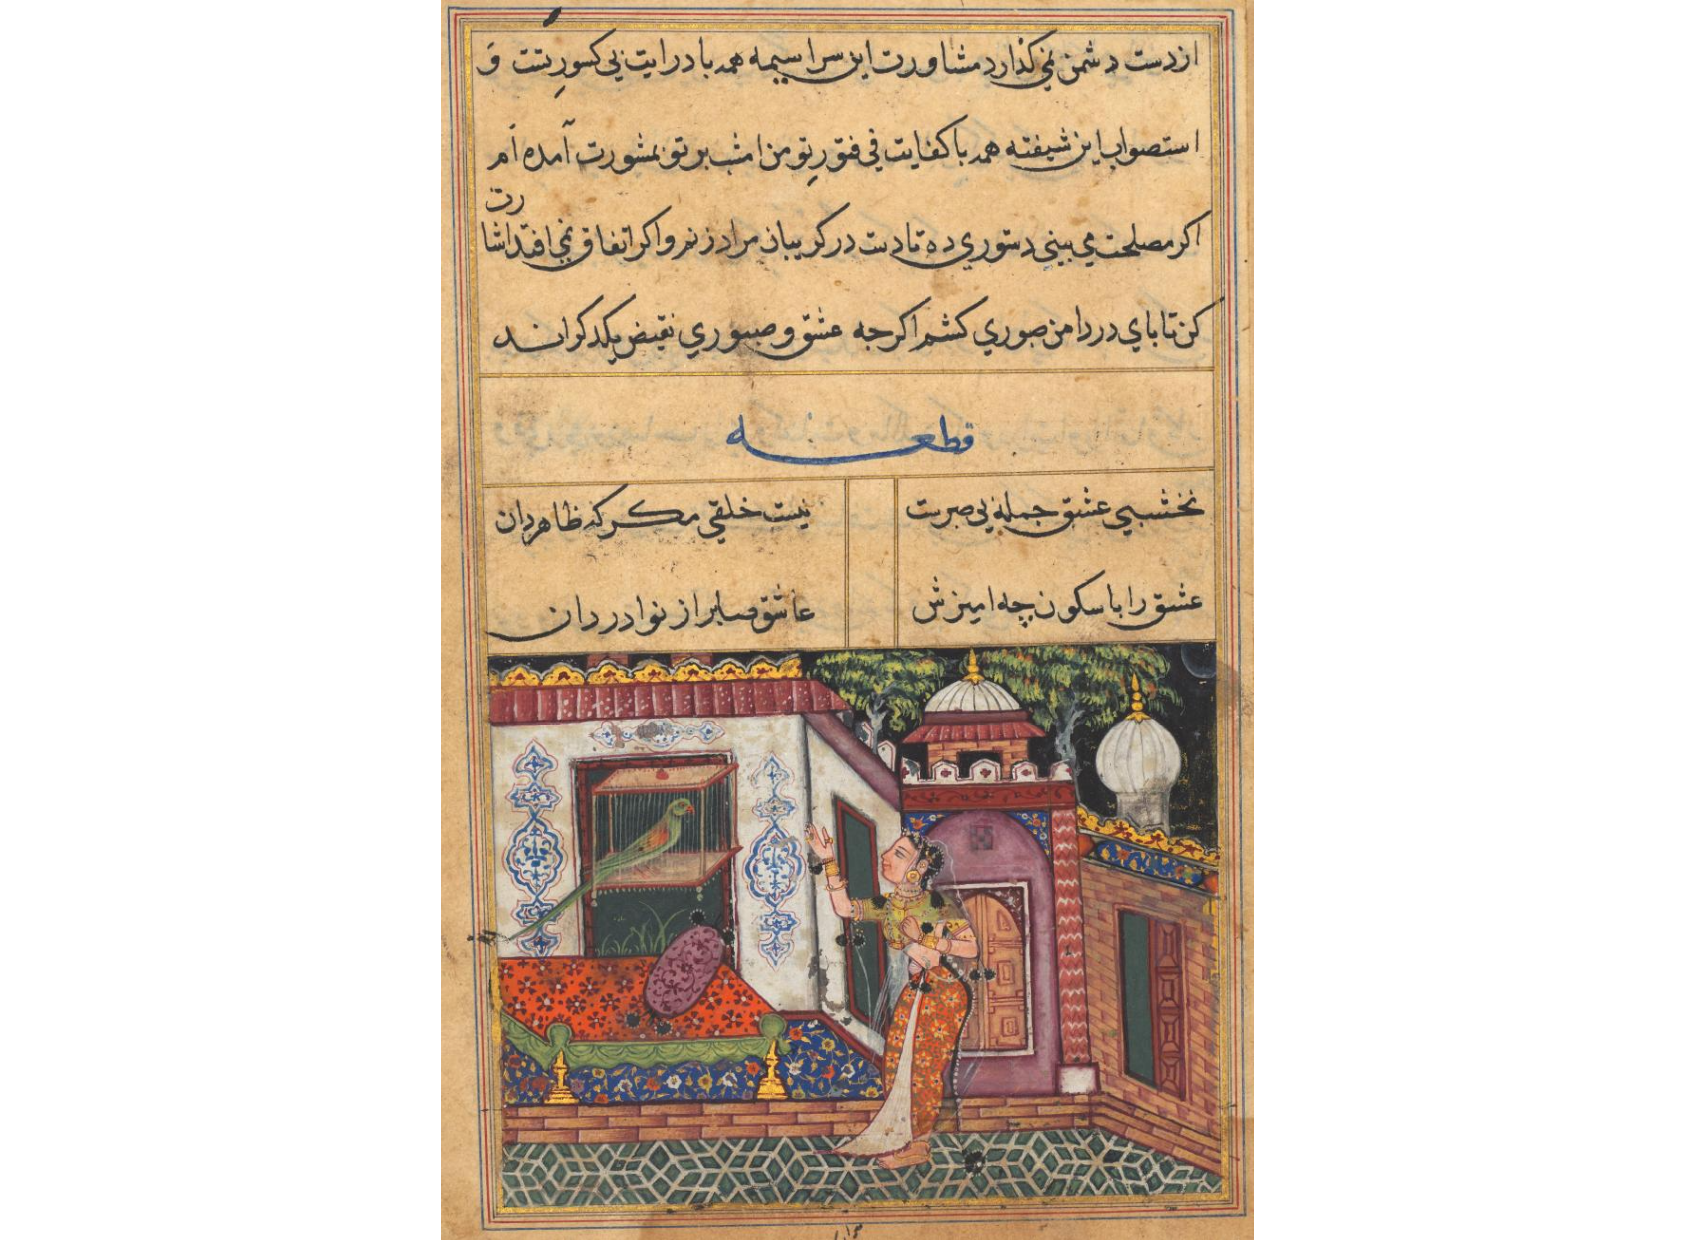 از دست دشمن نمی کذارد مشاورت این سراسیمه همه با درایت بی کسور تست و
استصواب این شیفته همه با کفایت فی فتور تو من امشب بر تو بمشورت آمده ام
اکر مصلحت می بینی دستوری ده تا دست در کریبان مراد زنم و اکر اتفاق نمی افتد اشارت
کن تا بای در دامن صبوری کشم اکرچه عشق و صبوری نقیض یکدکراند
قطعه
نخشبی عشق جمله بی صبریست نیست خلقی مکر که ظاهر دان
عشق را با سکون چه امیزش عاشق صابر از نوادر دان